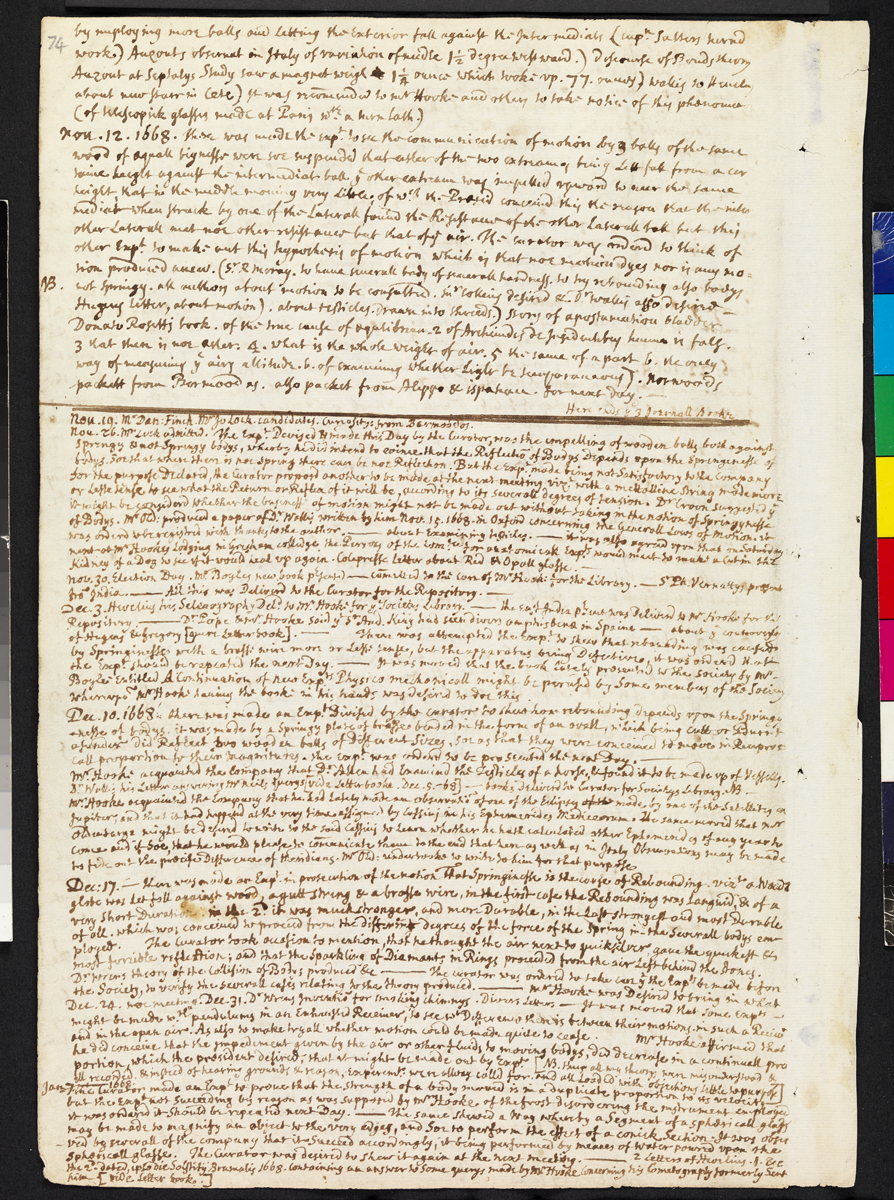 74
by employing more balls and Letting the Exterior fall against the Intermediats (Capt. Salters turnd
work.) Auzouts observat in Italy of variation of needle 1½ degree westward.) Discourse of Bonds theory
Auzout at Septalys Study saw a magnet weigh 1¼ ounce which tooke up 77. ounces) wallis to
about new starr in Cete) It was recomended to mr Hooke and others to take notice of this phenomena
(of Telescopick glasses made at Paris wth a turn lath.)
Nov. 12. 1668. there was made the expt. to see the communication of motion by 3 balls of the same
wood of aquall bignesse were soe suspended that either of the two extreams being Lett fall from a cer
taine height against the intermediate ball, ye other extream was impelled upward to neer the same
height that in the middle moving very Little. of wch the Presid conceived this the reason that the inter
mediat when struck by one of the Laterall found the Resistance of the other Laterall ball but this
other Laterall met noe other resistance but that of ye air. The curator was ordered to think of
other Expt. to make out this hypothesis of motion which is that noe motion dyes nor is any mo-
tion produced anew. (Sr. R moray. to have severall body of severall hardness. to try rebounding also bodys
NB. not springy. all authors about motion to be consulted. mr Collins desired & Dr wallis also desired
Hugens Letter, about motion). about testicles drawn into threeds.) story of apostumation bladder
Donato Rosetti book. of the true cause of equilibrium. 2 of Archimedes de Insidentibus humido is fals.
3 that there is noe other. 4. what is the whole weight of air. 5 the same of a part 6. the only
way of measuring ye airs altitude. 6. of examining whether Light be temporaneous). Norwoods
packett from Bermoodas. also packet from Aleppo & ispahan. for next day.
Here ends ye 3 Journall Booke
Nov. 19. Mr Dan: Finch. Mr Jo Lock. candidates. Curiositys from Barmoodos.
Nov. 26. Mr Lock admitted. The Expt. Devised & made this Day by the Curator, was the impelling of wooden balls both against
springy & not springy bodys, whereby he did intend to evince that the Reflection of Bodys Depends upon the Springinesse of
bodys. For that where there is not Spring there can be noe Reflection. But the Expt. made being not Satisfactory to the Company
for the purpose Declared, the Curator proposd another to be made at the next meeting vizt. with a mettalline String made more
or Lesse tense, to see what the Return or Reflex of it will be, according to its severall degrees of tension. Dr Croon suggested yt
it might be considerd whether the business of motion might not be made out without taking in the notion of Springynesse
of Bodys. Mr Old: produced a paper of Dr Wallis written by him Nov. 15. 1668. in Oxford concerning the Generall Laws of Motion. it
was orderd to be registerd with thanks to the author. — about Examining Vehicles. — it was also agreed upon that on Saturday
next at Mr Hookes Lodging in Gresham colledge, the Persons of the Comtee. for anatomicall Expts would meet to make a cut in the
kidney of a Dog to see if it would heal up again. Colepresse Letter about Rid & Opall glasse.
Nov. 30. Election Day. Mr Boyles new book presented — comitted to the care of Mr Hooke for the Library. — Sr Ph. Vernatty present
from India. — All this was Deliverd to the Curator for the Repository.
Dec. 3. Hevelius his Selenography Deld. to Mr Hooke for ye Societies Library. — the East India present was Deliverd to Mr Hooke for the
Repository. — Dr Pope & Mr Hooke said yt Sr And. King had seen divers amphisbenæ in Spaine — about ye controversie
of Hugens & Gregory [quære Letter book]. — There was attempted the Expt. to shew that rebounding was caused
by Springinesse with a brasse wire more or Lesse tense, but the apparatus being Defective, it was orderd that
the Expt. should be repeated the next Day. — It was moved that the book lately presented to the Society by Mr
Boyle Entitled A Continuation of new Expts Physico mechanicall might be perused by Some members of the Society
whereupon Mr Hooke having the booke in his hands was desired to doe this.
Dec. 10. 1668: there was made an Expt. Divised by the curator to shew how rebounding depends upon the Springi-
-nesse of bodys. it was made by a Springy plate of brasse bended in the form of an ovall, which being cutt or Burnt
asunder did Reflect two wooden balls of Different Sizes, soe as that they were conceived to move in Recipro
call proportion to their magnitudes. the Expt. was orderd to be prosecuted the next Day.
Mr Hooke acquainted the Company that Dr. Allen had Examined the Testicles of a horse, & found it to be made up of Vessells.
Dr Wallis his Letter answering Mr Neils Querys (vide Letter booke. Dec. 5. 68) — books delivered to Curator for Societys Library. NB —
Mr Hooke acquainted the Company that he had Lately made an observation of one of the Eclipses of the made by one of the Satellites in
Jupiter, and that it had happed at the very time assigned by Cassini in his Ephemerides Mediceorum. He same moved that mr
Oldenburge might be desired to write to the said Cassini to Learn whether he hath calculated other Ephemerides of any year to
come and if Soe, that he would please to communicate them to the end that here as well as in Italy Observations may be made
to find out the precise Difference of Meridians. Mr Old: undertooke to write to him for that purpose.
Dec: 17. — There was made an Expt. in prosecution of the notion That Springinesse is the cause of Rebounding. vizt. a Wood
globe was let fall against wood, a gutt string & a brasse wire, in the first case the Rebounding was Languid, & of a
very Short Duration, in the 2d it was much stronger, and more Durable, in the Last strongest and most Durable
of all. which was conceived to proceed from the different degrees of the force of the Spring in the severall bodys em-
ployed. The Curator took occasion to mention, that he thought the air next to quicksilver, gave the quickest &
most forcible reflection; and that the Sparkling of Diamants in Rings proceeded from the air Left behind the Stones.
Dr Wrens theory of the Collision of Bodys produced &c — The curator was ordered to take care yt the Expts be made before
the Society, to verify the severall cases relating to the theory produced. — Mr Hooke was Desired to bring in what
Dec. 24. noe meeting. Dec. 31. Dr Wrens Invention for smoking chimnys. Divers Letters — It was moved that some Expts —
might be made wth pendulums in an Exhausted Receiver, to see wt Difference there is between their motions in such a Receiver
and in the open air. As also to make tryall whether motion could be made quite to cease. Mr Hooke affirmed that
he did conceive that the impediment given by the air or other fluids to moving bodys, did decrease in a continuall pro
portion, which the president desired, that it might be made out by Expt. [NB. thus all my theory were misunderstood &
ill recorded, & insteed of hearing grounds & reason, experimts. were allways called for. and all loaded with objections little to purpose]
Jan. 7 1668. The Curator made an Expt to prove that the strength of a body moved is in a duplicate proportion to its velocity
but the Expt not Succeeding by reason as was supposed by Mr Hooke of the frost disordering the instrument employed
it was ordered it should be repeated next Day. — The same shewed a Way wherby a Segment of a sphericall glass
may be made to magnify an object to the very edges, and Soe to perform the effect of a conick Section. It was obser
ved by severall of the company that it Succeed accordingly, it being performed by means of water powred upon the
sphericall glasse. The Curator was desired to Shew it again at the next meeting. — 2 Letters of Hevelius. 1. &c
the 2d. dated, ipso die Solstitij Brumalis 1668. containing an answer to Some querys made by Mr Hooke concerning his Cometography formerly sent
him [vide Letter booke.]